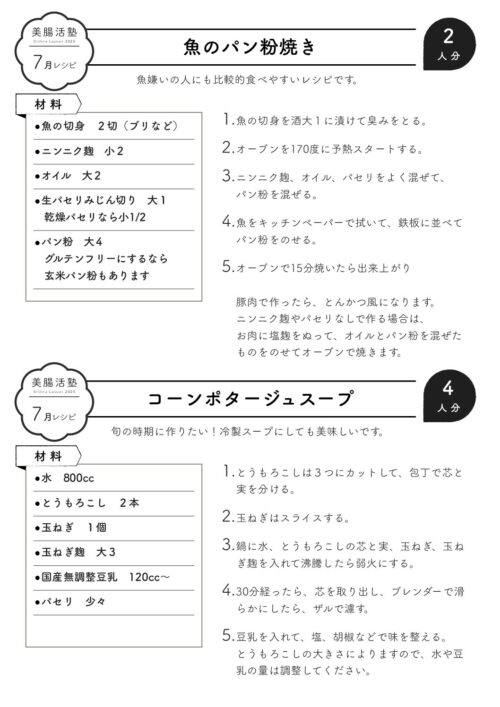 美腸活塾
7月レシピ
魚のパン粉焼き
2
人分
魚嫌いの人にも比較的食べやすいレシピです。
材料
●魚の切身　２切（ブリなど）
●ニンニク麹　小２
●オイル　大２
●生パセリみじん切り　大１
乾燥パセリなら小1/2
●パン粉　大４
グルテンフリーにするなら
玄米パン粉もあります
1.魚の切身を酒大１に漬けて臭みをとる。
2.オーブンを170度に予熱スタートする。
3.ニンニク麹、オイル、パセリをよく混ぜて、
パン粉を混ぜる。
4.魚をキッチンペーパーで拭いて、鉄板に並べて
パン粉をのせる。
5.オーブンで15分焼いたら出来上がり
豚肉で作ったら、とんかつ風になります。
ニンニク麹やパセリなしで作る場合は、
お肉に塩麹をぬって、オイルとパン粉を混ぜた
ものをのせてオーブンで焼きます。
美腸活塾
7月レシピ
コーンポタージュスープ
4
人分
旬の時期に作りたい！冷製スープにしても美味しいです。
材料
●水　800cc
●とうもろこし　２本
●玉ねぎ　１個
●玉ねぎ麹　大３
●国産無調整豆乳　120cc〜
●パセリ　少々
1.とうもろこしは３つにカットして、包丁で芯と
実を分ける。
2.玉ねぎはスライスする。
3.鍋に水、とうもろこしの芯と実、玉ねぎ、玉ね
ぎ麹を入れて沸騰したら弱火にする。
4.30分経ったら、芯を取り出し、ブレンダーで滑
らかにしたら、ザルで濾す。
5.豆乳を入れて、塩、胡椒などで味を整える。
とうもろこしの大きさによりますので、水や豆
乳の量は調整してください。